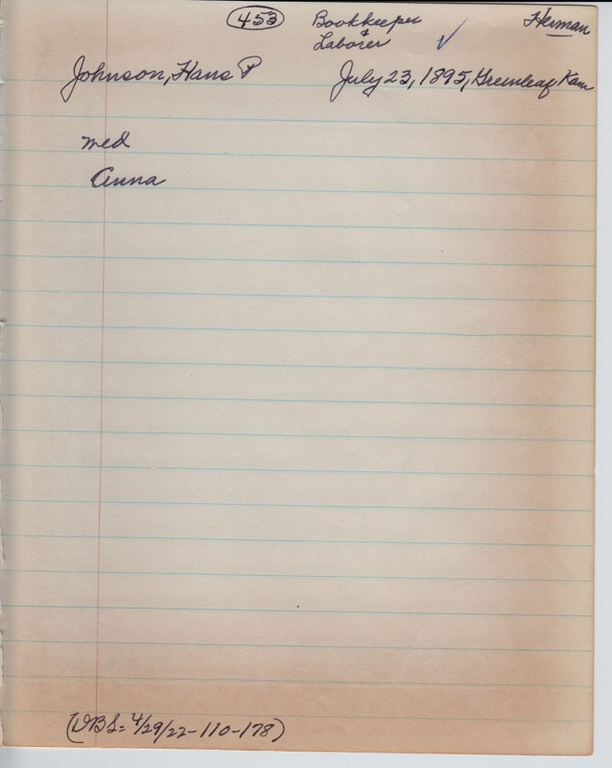 453
Bookkeeper
&
Laborer
Herman
Johnson, Hans P
July 23, 1895, Greenleaf Kan
med
Anna
(DBS= 4/29/22-110-178)